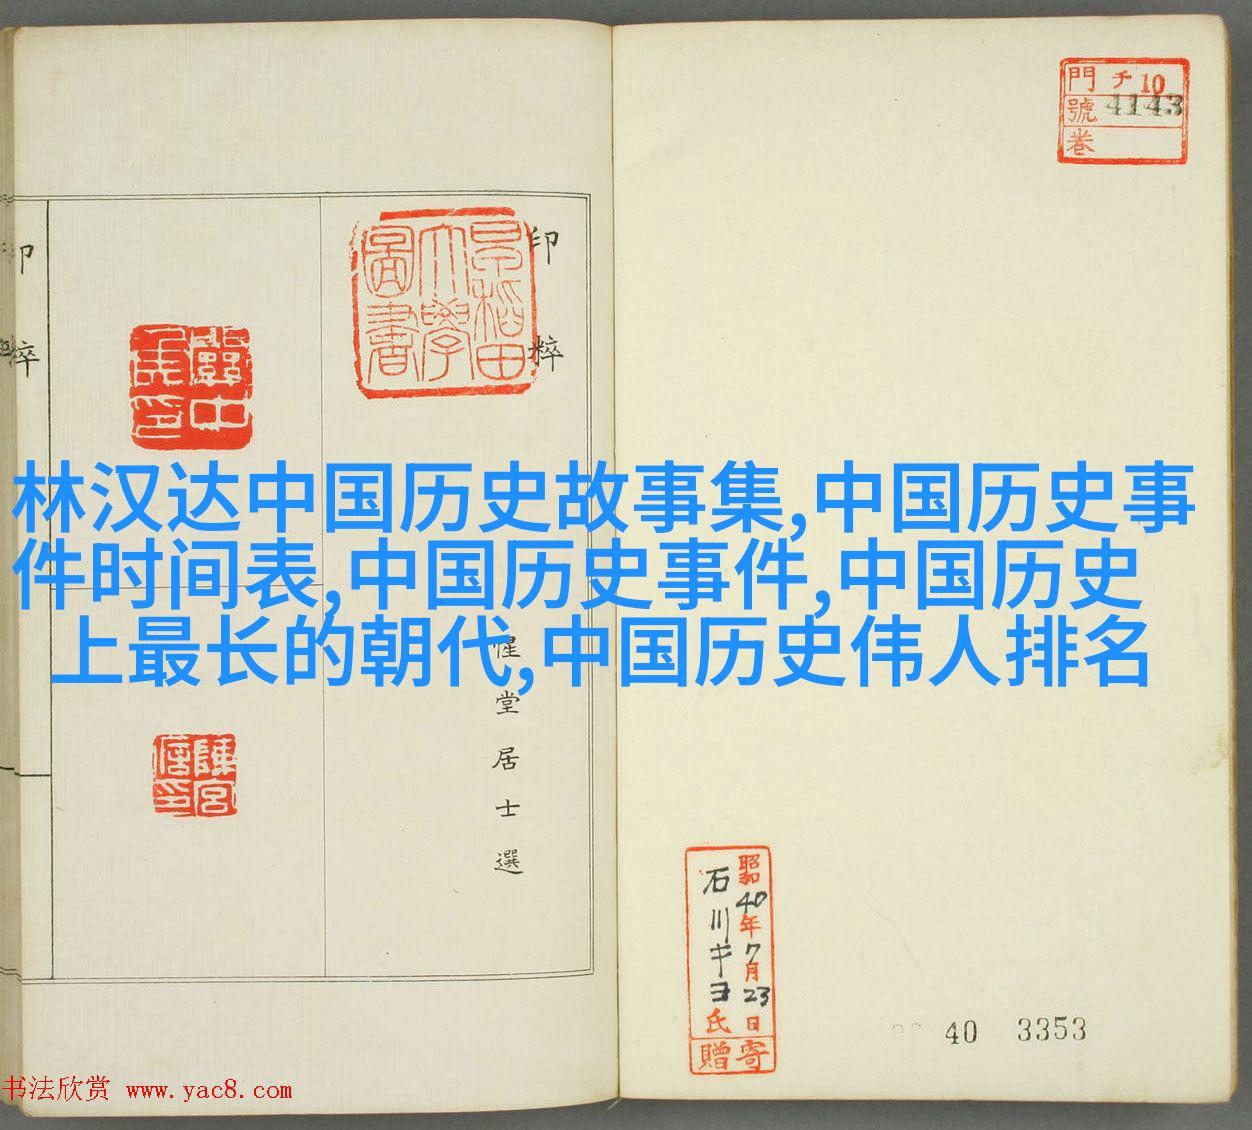 門 チ 10
號 4143
卷
印粹
印粹
早稻田
大學
圖書
林汉达中国历史故事集,中国历史事
件时间表,中国历史事件,中国历史
上最长的朝代,中国历史伟人排名
惺堂居士選
陳宮
信印
昭和40年7月23日寄
石川キヨ氏贈
40 3353
书法欣赏 www.yac8.com